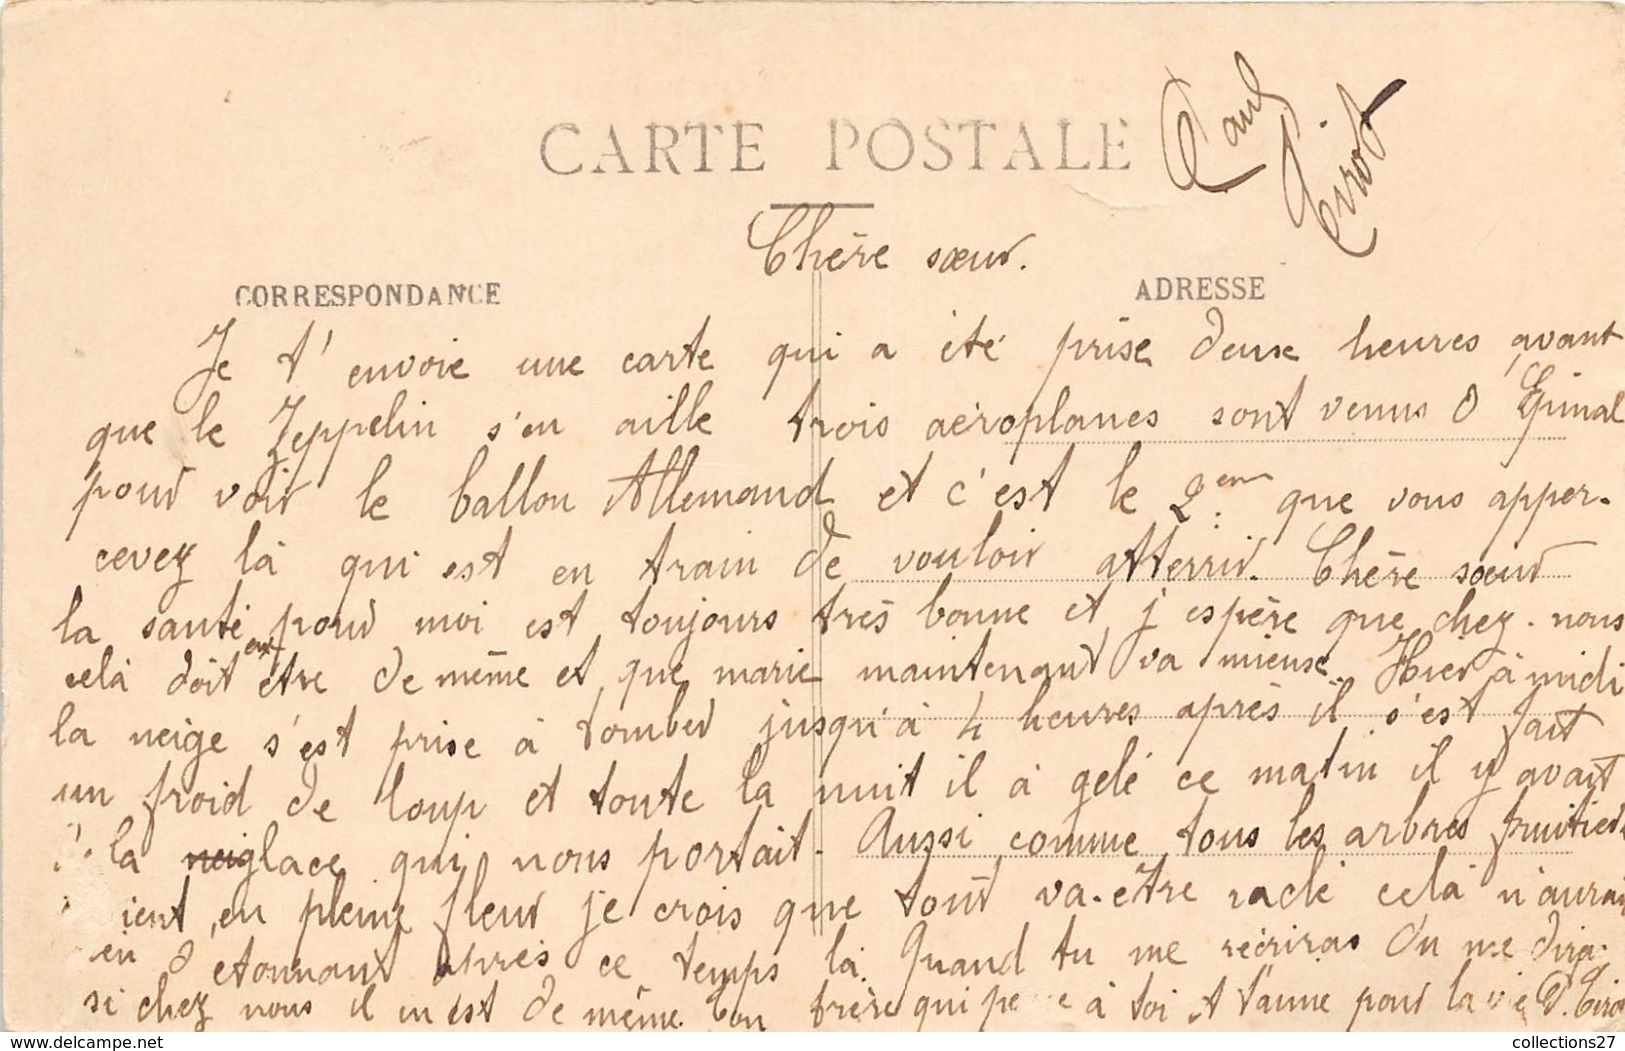 CARTE POSTALE
Paul
Tirot
Chère sœur.
CORRESPONDANCE
ADRESSE
Je t'envoie une carte qui a été prise deux heures avant
que le Zeppelin s'en aille trois aéroplanes sont venus d'Epinal
pour voir le ballon Allemand et c'est le 2em que vous apper-
cevez là qui est en train de vouloir atterrir. Chère sœur
la santé pour moi est toujours très bonne et j espère que chez-nous
celà doit en être de même et que marie maintenant va mieux. Hier à midi
la neige s'est prise à tomber jusqu'à 4 heures après il s'est fait
un froid de loup et toute la nuit il à gelé ce matin il y avait
la glace qui nous portait. Aussi comme tous les arbres fruitiers
en pleine fleur je crois que tout va-être raclé celà n'aurait
d'étonnant après ce temps là. Quand tu me récriras tu me diras
si chez nous il en est de même. Ton frère qui pe e à toi et t'aime pour la vie P. Tirot
collections27